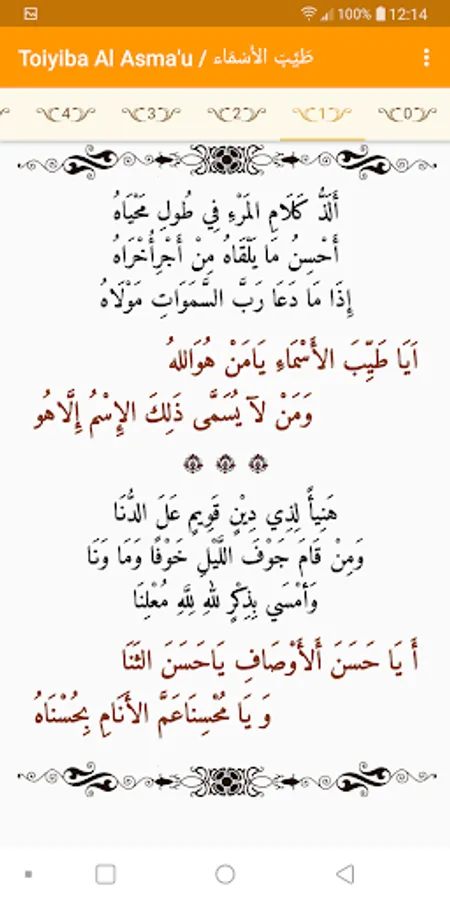 100% 12:14
Toiyiba Al Asma'u / طَيِّبَ الأَسْمَاء
4 3 2 1 0
أَلَذُّ كَلَامِ المَرْءِ فِي طُولِ مَحْيَاهُ
أَحْسِنُ مَا يَلْقَاهُ مِنْ أَجْرِأُخْرَاهُ
إِذَا مَا دَعَا رَبَّ السَّمَوَاتِ مَوْلَاهُ
اَيَا طَيِّبَ الأَسْمَاءِ يَامَنْ هُوَاللهُ
وَمَنْ لآ يُسَمَّى ذَلِكَ الإِسْمُ إِلَّاهُو
هَنِيأً لِذِي دِيْنٍ قَوِيمٍ عَلَ الدُّنَا
وَمِنْ قَامَ جَوْفَ اللَّيْلِ خَوْفًا وَمَا وَنَا
وَأمْسَي بِذِكْرٍ للهِ لِلَّهِ مُعْلِنَا
أ يَا حَسَنَ ألأَوْصَافِ يَاحَسَنَ الثَنَا
وَ يَا مُحْسِنَاعَمَّ الأَنَامِ بِحُسْنَاهُ